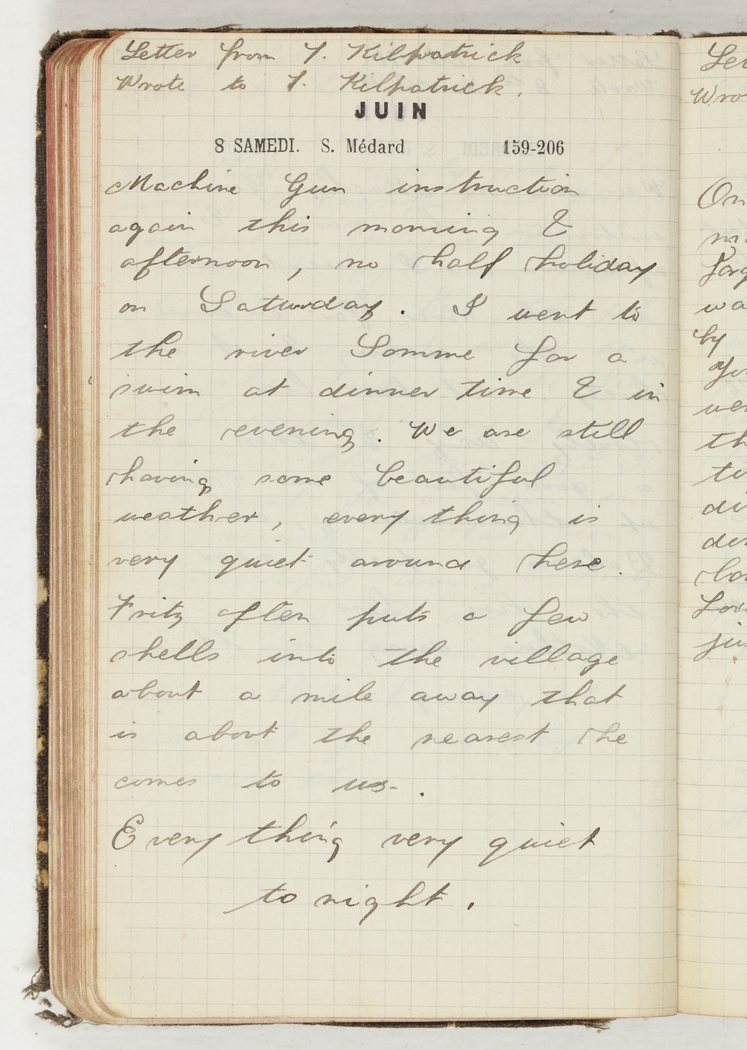 Letter from T. Kilpatrick
Wrote to T. Kilpatrick.
JUIN
8 SAMEDI. S. Médard 159-206
Machine Gun instruction
again this morning &
afternoon, no half holiday
on Saturday. I went to
the river Somme for a
swim at dinner time & in
the evening. We are still
having some beautiful
weather, every thing is
very quiet around here.
Fritz often puts a few
shells into the village
about a mile away that
is about the nearest he
comes to us.
Every thing very quiet
to night.
Wro
On
wa
by